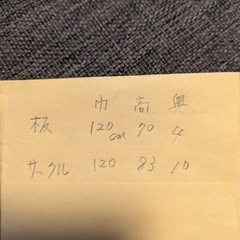 巾 高 奥
板 120cm 70 4
サークル 120 83 10